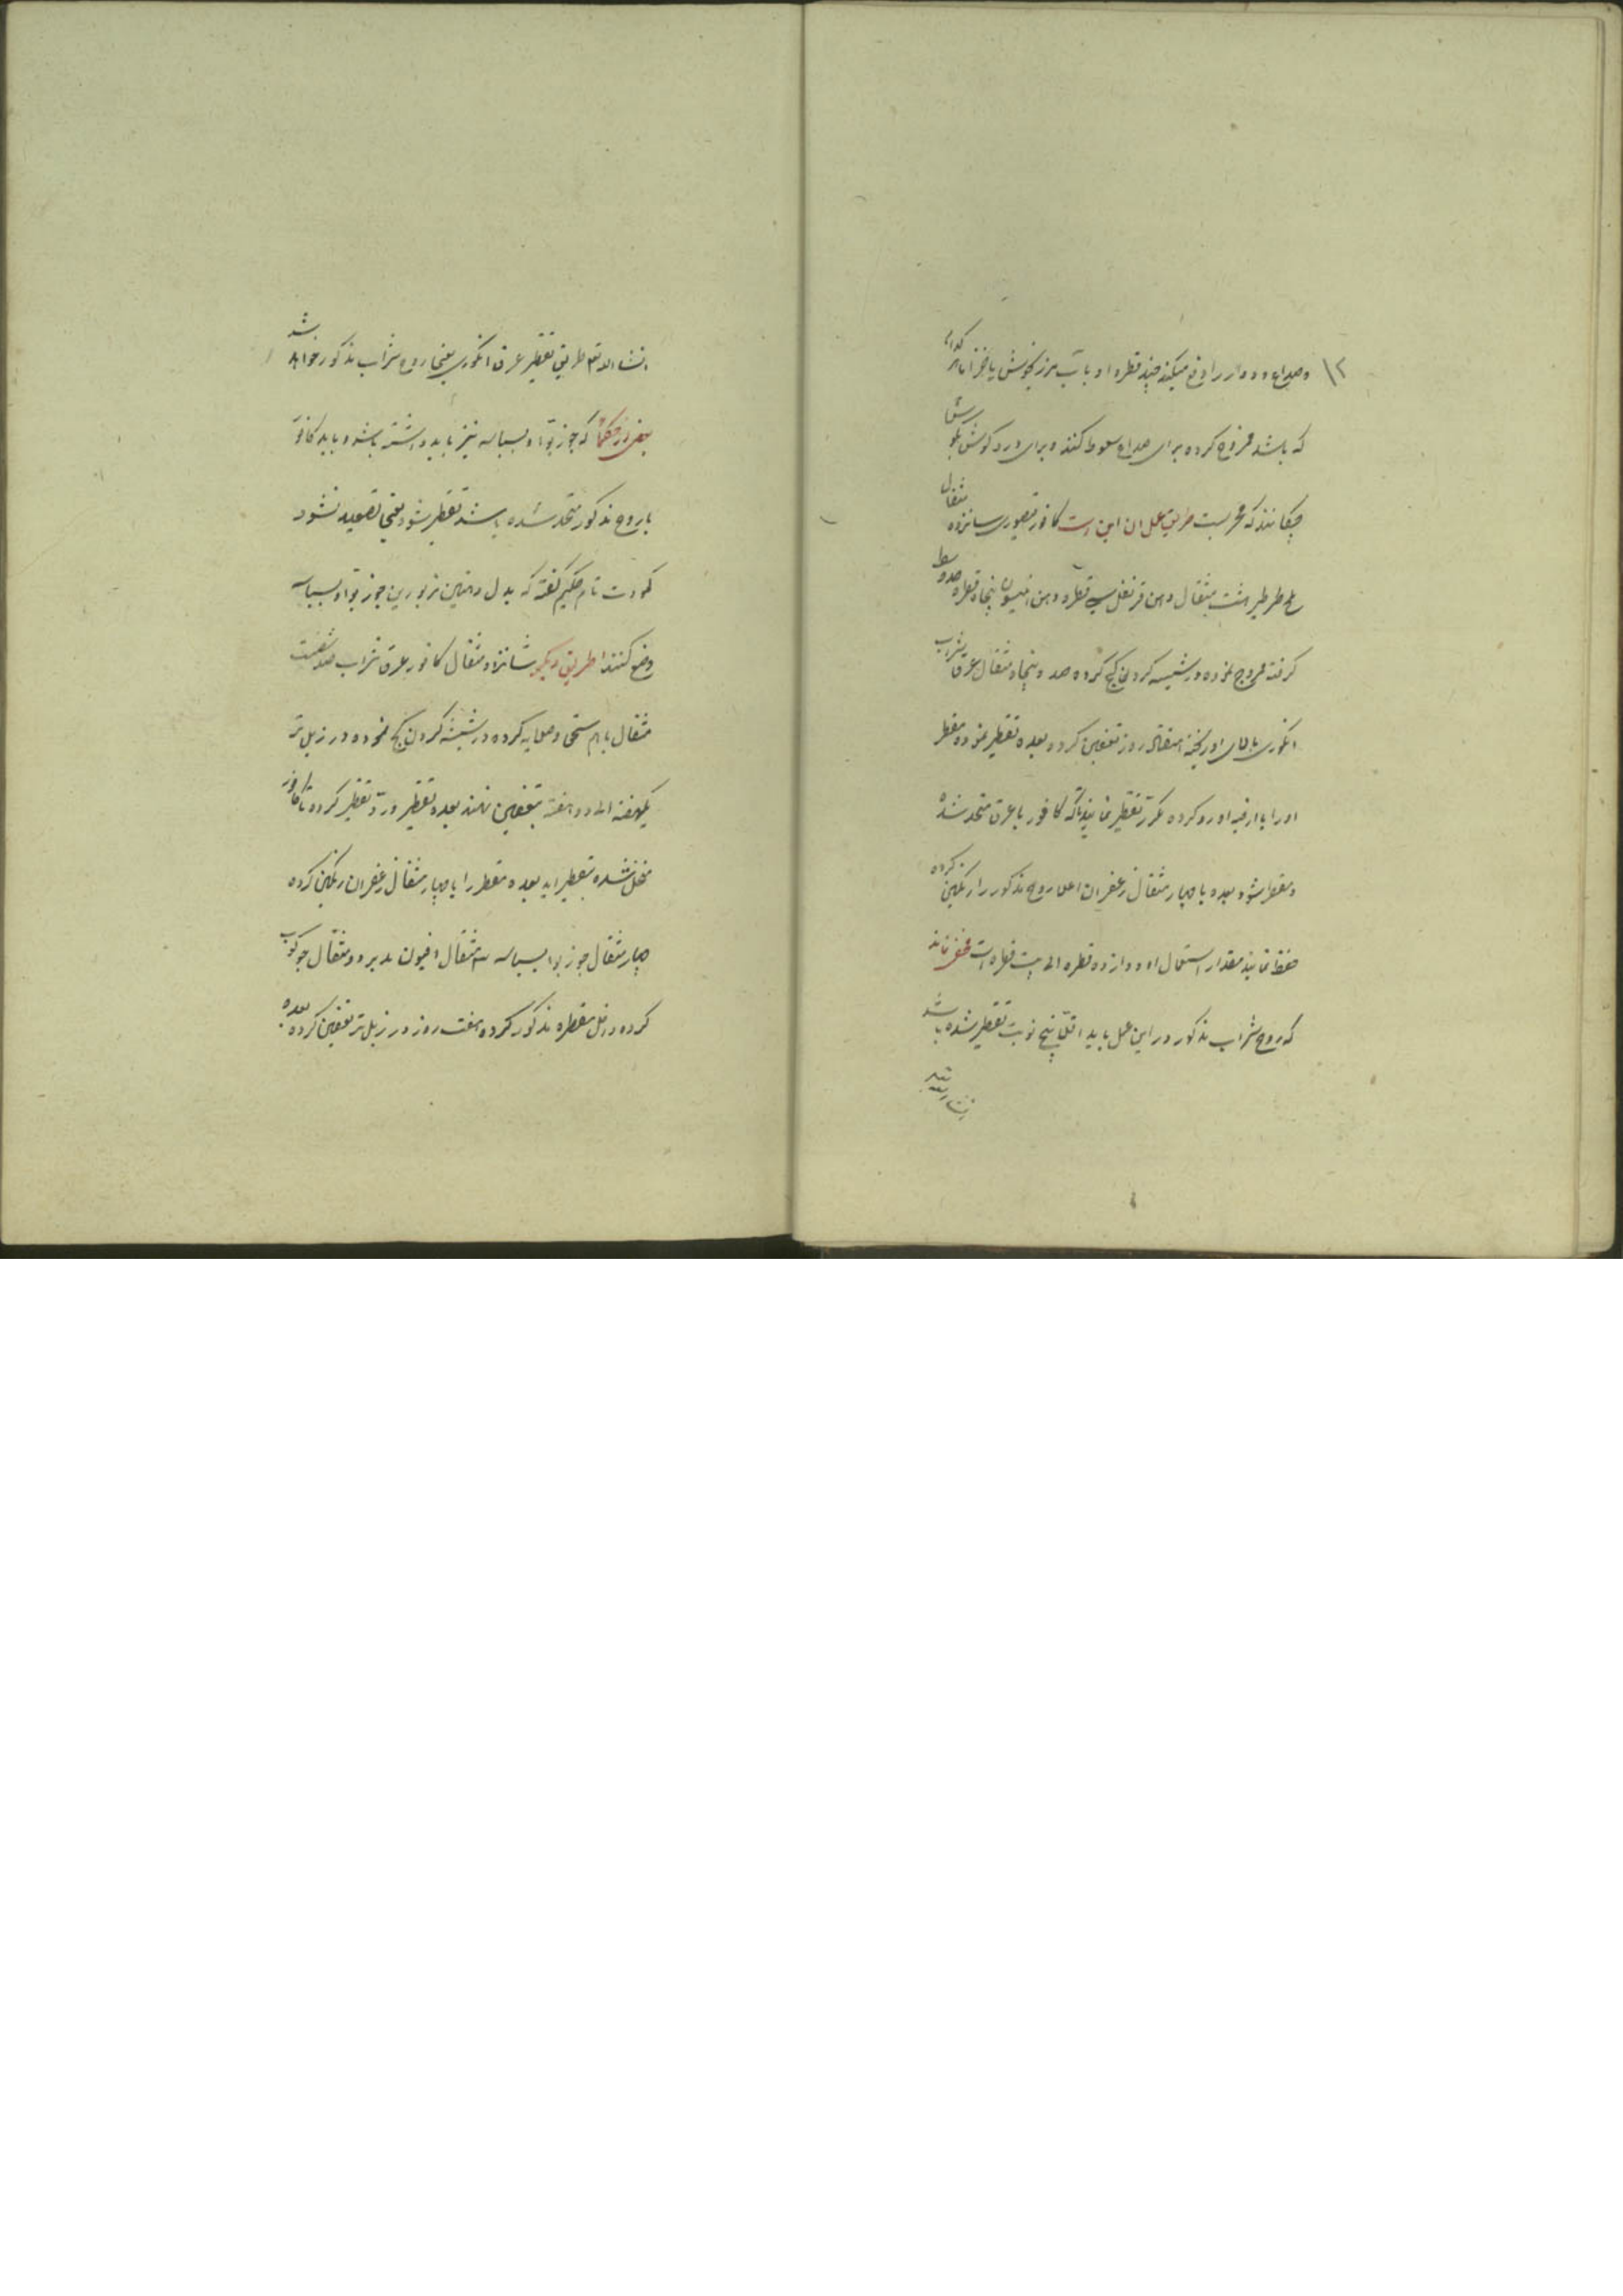 ۱۲
وصداع و دوار را دفع میکند چند قطره او با آب مرزنجوش یا خزاما هر کدام
که باشد ممزوج کرده برای صداع سعوط کنند و برای درد کوش بکوشش
چکانند که مجربست طریق عمل ان این است کافور قیصوری شانزده مثقال
ملح طرطیر هشت مثقال دهن قرنفل سی قطره دهن انیسون پنجاه قطره
کرفته ممزوج نموده در شیشه کردن کج کرده صد و پنجاه مثقال عرق شراب
انکوری بالای او ریخته روز تعفین کرده بعده تقطیر نموده مقطر
اورا با ارضیه او رد کرده مکرر تقطیر نمایند تا که کافور با عرق متحد شده
و مقطر شود بعده با چهار مثقال زعفران اعلا روح مذکور را رنکین کرده
حفظ نمایند مقدار استعمال او دوازده قطره الی بیست قطره است مخفی نماند
که روح شراب مذکور در این عمل باید اقلا پنج نوبت تقطیر شده باشد
انشاالله تعم طریق تقطیر عرق انکوری یعنی روح شراب مذکور خواهد شد
بعضی از حکما که جوز بوا و بسباسه نیز باید داشته باشد و باید کافور
با روح مذکور متحد شده باشد تقطیر شود یعنی تصعید نشود
حکیم کفته که بدل دهنین مزبورین جوز بوا و بسباسه
وضع کنند طریق دیکر شانزده مثقال کافور عرق شراب صد شصت
مثقال باهم سحق و صلایه کرده در شیشه کردن کج نموده در زبل تر
یکهفته الی دو هفته بتعفین نهند بعده تقطیر و رد تقطیر کرده تا کافور
منحل شده بتقطیر اید بعده مقطر را با چهار مثقال زعفران رنکین کرده
چهار مثقال جوز بوا بسباسه سه مثقال افیون مدبر دو مثقال جوکوب
کرده داخل مقطره مذکور کرده هفت روز در زبل تر تعفین کرده بعده